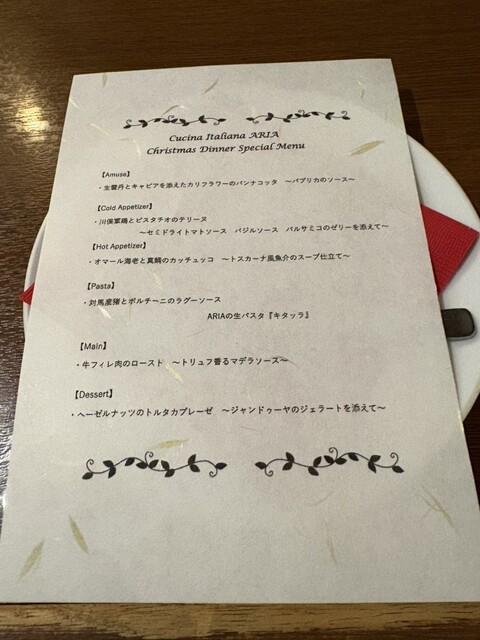 Cucina Italiana ARIA
Christmas Dinner Special Menu
【Amuse】
・生雲丹とキャビアを添えたカリフラワーのパンナコッタ ～パプリカのソース～
【Cold Appetizer】
・川俣軍鶏とピスタチオのテリーヌ
～セミドライトマトソース バジルソース バルサミコのゼリーを添えて～
【Hot Appetizer】
・オマール海老と真鯛のカッチュッコ ～トスカーナ風魚介のスープ仕立て～
【Pasta】
・対馬産猪とポルチーニのラグーソース
ARIAの生パスタ『キタッラ』
【Main】
・牛フィレ肉のロースト ～トリュフ香るマデラソース～
【Dessert】
・ヘーゼルナッツのトルタカプレーゼ ～ジャンドゥーヤのジェラートを添えて～